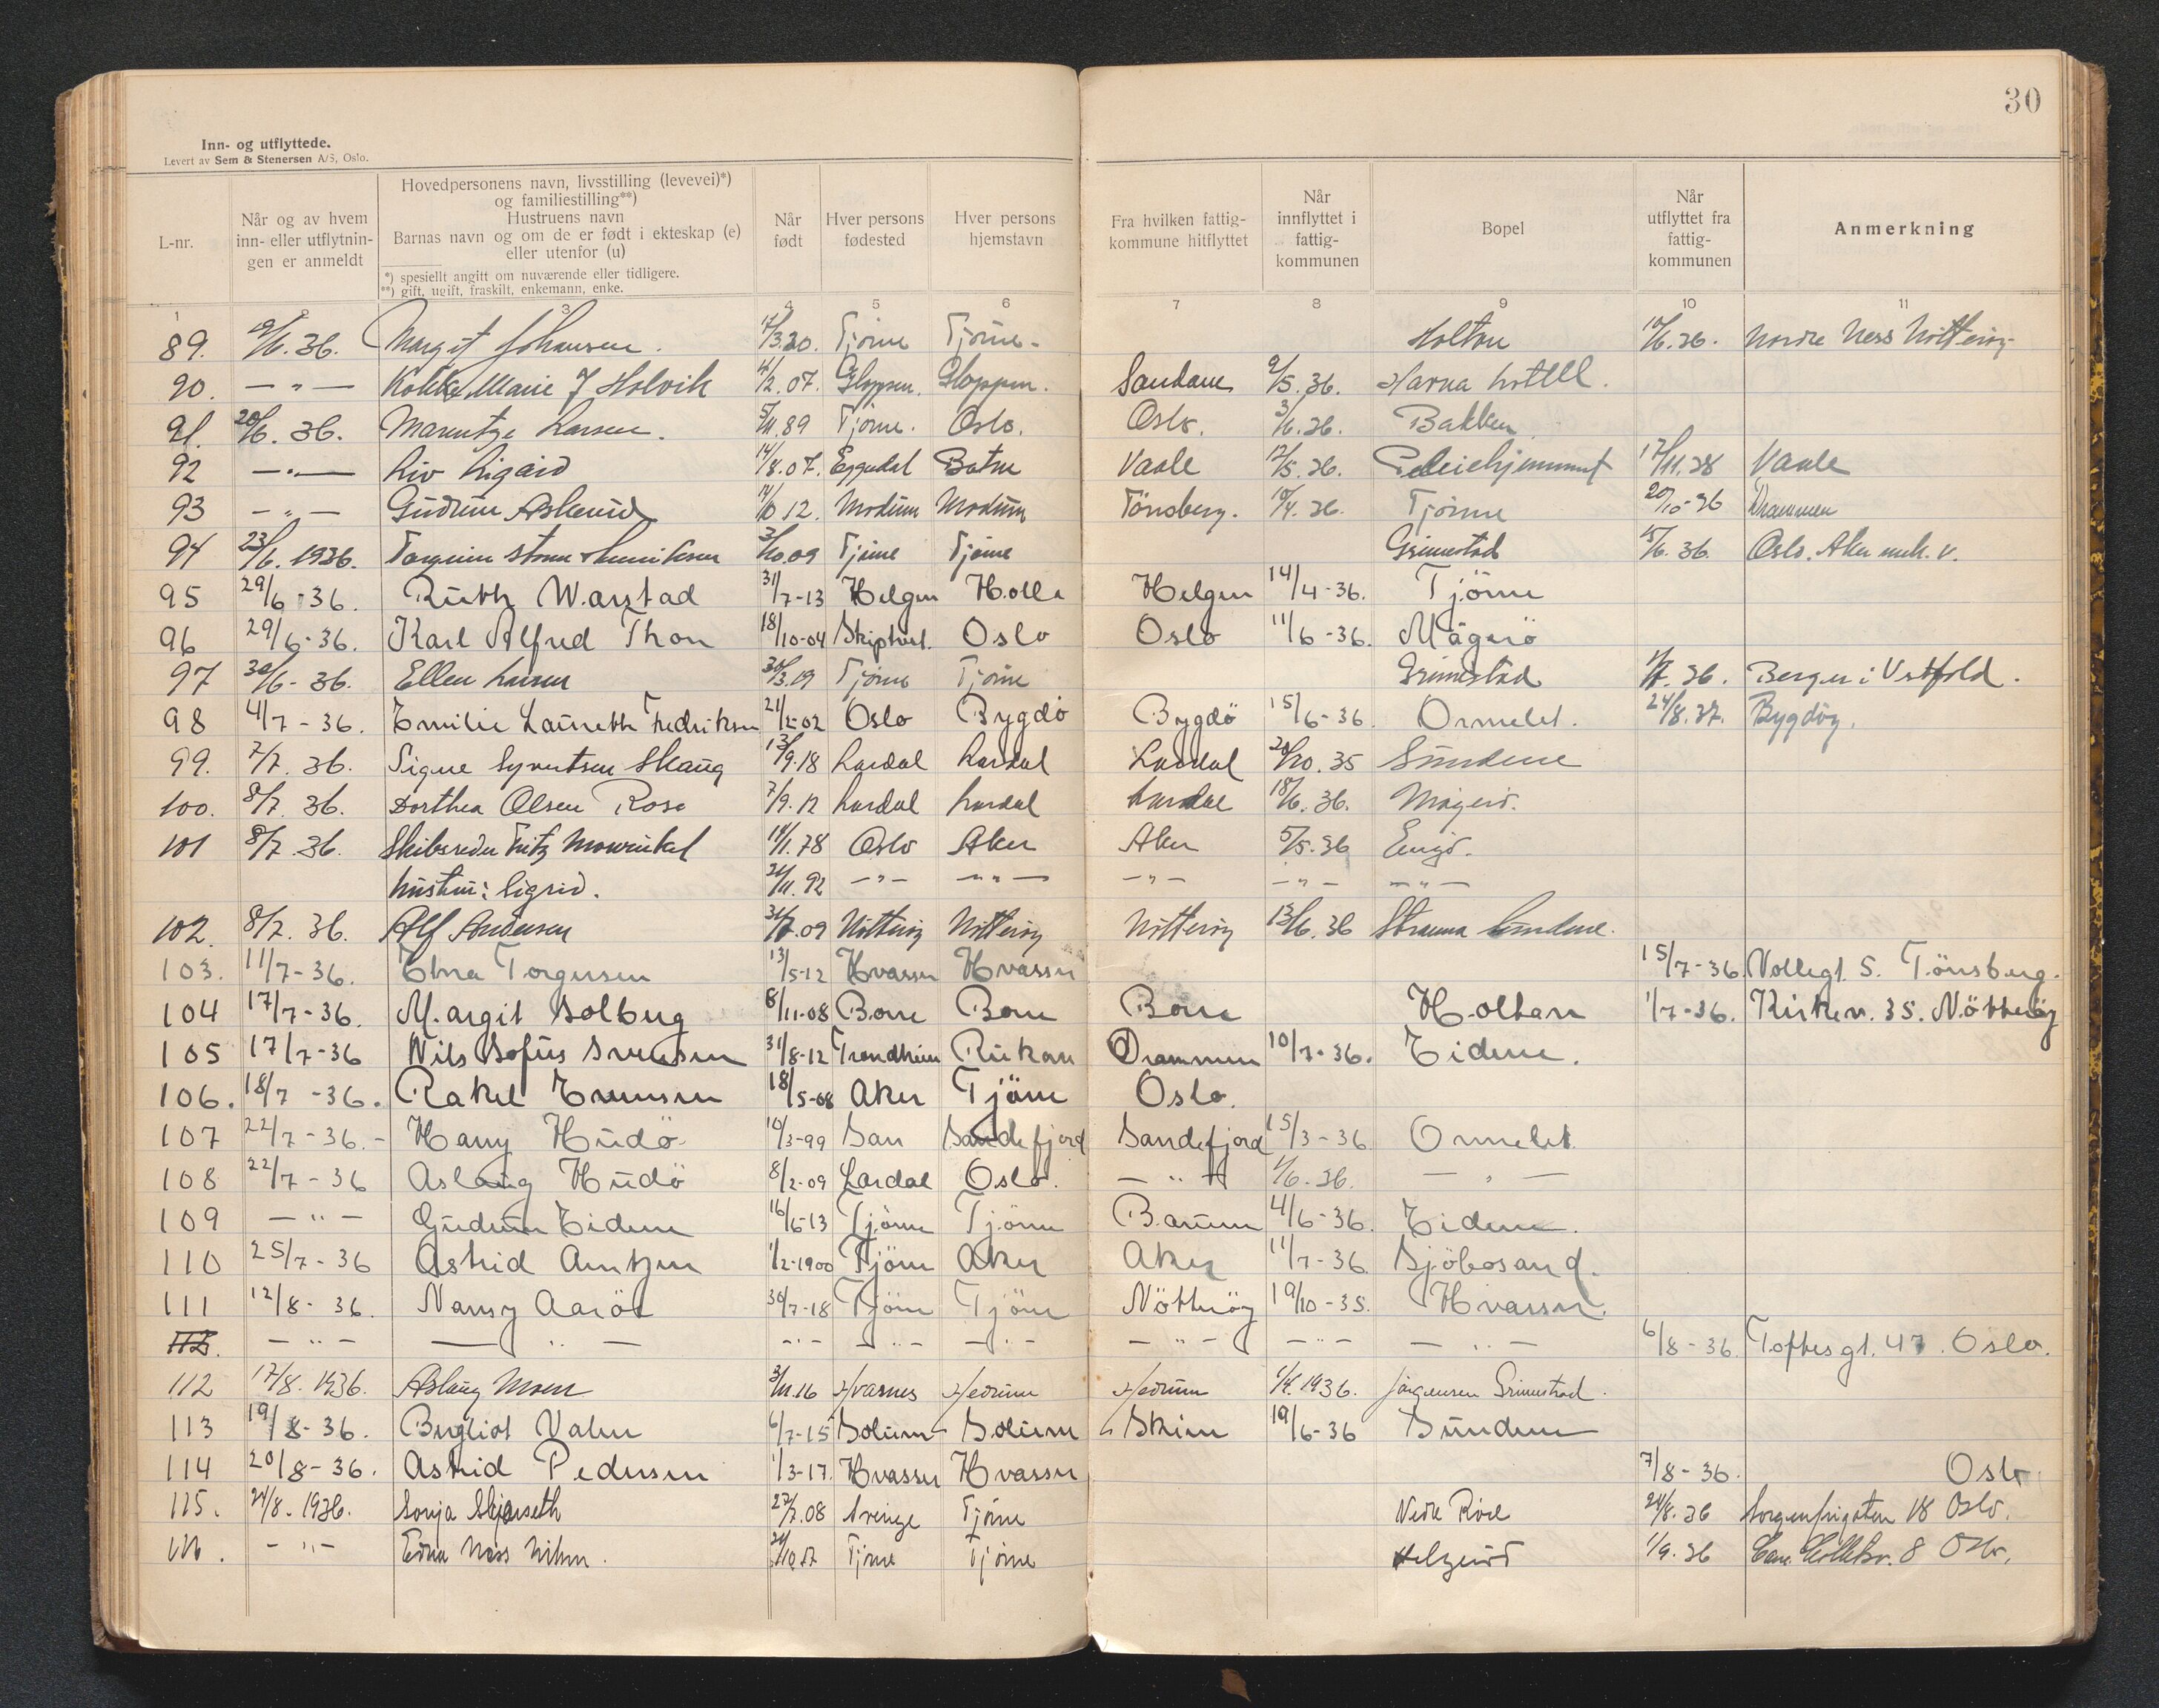 30
Inn- og utflyttede.
Levert av Sem & Stenersen A/S, Oslo.
L-nr. | Når og av hvem inn- eller utflytningen er anmeldt | Hovedpersonens navn, livsstilling (levevei)*) og familiestilling**) Hustruens navn Barnas navn og om de er født i ekteskap (e) eller utenfor (u) *) spesiellt angitt om nuværende eller tidligere. **) gift, ugift, fraskilt, enkemann, enke. | Når født | Hver persons fødested | Hver persons hjemstavn | Fra hvilken fattigkommune hitflyttet | Når innflyttet i fattigkommunen | Bopel | Når utflyttet fra fattigkommunen | Anmerkning
1 3 4 5 6 7 8 9 10 11
89. 9/6. 36. Margit Johansen. 17/3.20. Tjöme Tjöme - Holtan 10/6.36. Nordre Ness Nötteröy
90. — " — Marie J Holvik 4/2.07. Gloppen. Gloppen. Sandane 9/5.36. Havna hotell.
91. 20/6. 36. Marentze Larsen. 5/11.89 Tjöme. Oslo. Oslo. 3/6.36. Bakken
92 — " — Liv Ligård 14/8.07. Eggedal Botne Vaale 12/5.36. Pleiehjemmet 17/11.38 Vaale
93 — " — Gudrun Aslerud 12. Modum Modum Tönsberg. 10/4.36. Tjöme 20/10-36 Drammen
94 23/6. 1936. Torgrim Strøm Henriksen 3/10.09 Tjöme Tjöme Grimestad 15/6.36. Oslo. Aker
95 29/6-36. Ruth Warstad 31/7-13 Helgen Holla Helgen 14/4-36. Tjöme
96 29/6-36. Karl Alfred Thon 18/10-04 Skiptvet. Oslo Oslo 11/6-36. Mågerö
97 30/6-36. Ellen Larsen 30/3.19 Tjöme Tjöme Grimestad 1/7.36. Berger i Vestfold.
98 4/7-36. Emilie Laureth Fredriksen 21/2-02 Oslo Bygdö Bygdö 15/6-36. Ormelet. 24/8.37. Bygdöy.
99. 7/7. 36. Signe Syvertsen Skaug 13/9.18 Lardal Lardal Lardal 20/10.35 Sundene
100. 8/7. 36. Dorthea Olsen Rose 7/9.12 Lardal Lardal Lardal 18/6.36. Mågerö.
101 8/7. 36. Skibsreder Fritz Mowinkel 14/1.78 Oslo Aker Aker 5/5.36
hustru: Sigrid. 24/11.92 — " — — " — — " — — " — — " —
102. 8/7. 36. Alf Andersen 31/7.09 Nötteröy Nötteröy Nötteröy 13/6.36 Strøma Sundene.
103. 11/7-36. Edna Torgersen 13/5-12 Hvasser Hvasser 15/7-36. Vollegt. 5. Tönsberg.
104 17/7-36. Margit Solberg 8/11-08 Borre Borre Borre Holtan 1/7-36. Kirkev. 35. Nötteröy
105 17/7-36 Nils Sofus Svensen 31/8-12 Trondheim Rukan Drammen 10/7-36. Eidene.
106. 18/7-36. Rakel Evensen 18/5-08 Aker Tjöme Oslo.
107 22/7-36.- Harry Hudö 10/3-99 San Sandefjord Sandefjord 15/3-36 Ormelet
108 22/7-36 Aslaug Hudö 8/2-09 Lardal Oslo. — " — 1/6.36. — " —
109 — " — Gudrun Eidene 16/6-13 Tjöme Tjöme Bærum 4/6-36. Eidene.
110 25/7-36 Astrid Arntzen 1/2-1900 Tjöme Aker Aker 11/7-36. Sjöbosand.
111 12/8-36. Nancy Aaröe 30/7-18 Tjöme Tjöme Nötteröy 19/10-35. Hvasser.
112. — " — — " — — " — — " — — " — — " — — " — — " — 6/8-36. Toftesgt. 47. Oslo.
112 17/8. 1936. Aslaug Moen 3/11.16 Hvarnes Hedrum Hedrum 1/4.1936. Jörgensen Grimestad.
113 19/8-36. Bergliot Valen 6/7-15 Solum Solum Skien 19/6-36 Sundene
114 20/8-36. Astrid Pedersen 1/3-17. Hvasser Hvasser 7/8-36. Oslo
115. 24/8. 1936. Sonja Skjærseth 27/7.08 Tjöme Nedre Röd 24/8.36 Sorgenfrigaten 18 Oslo.
116. — " — Edna Ness Nilsen. 17 Tjöme Tjöme Helgeröd 1/9.36 8 Oslo.